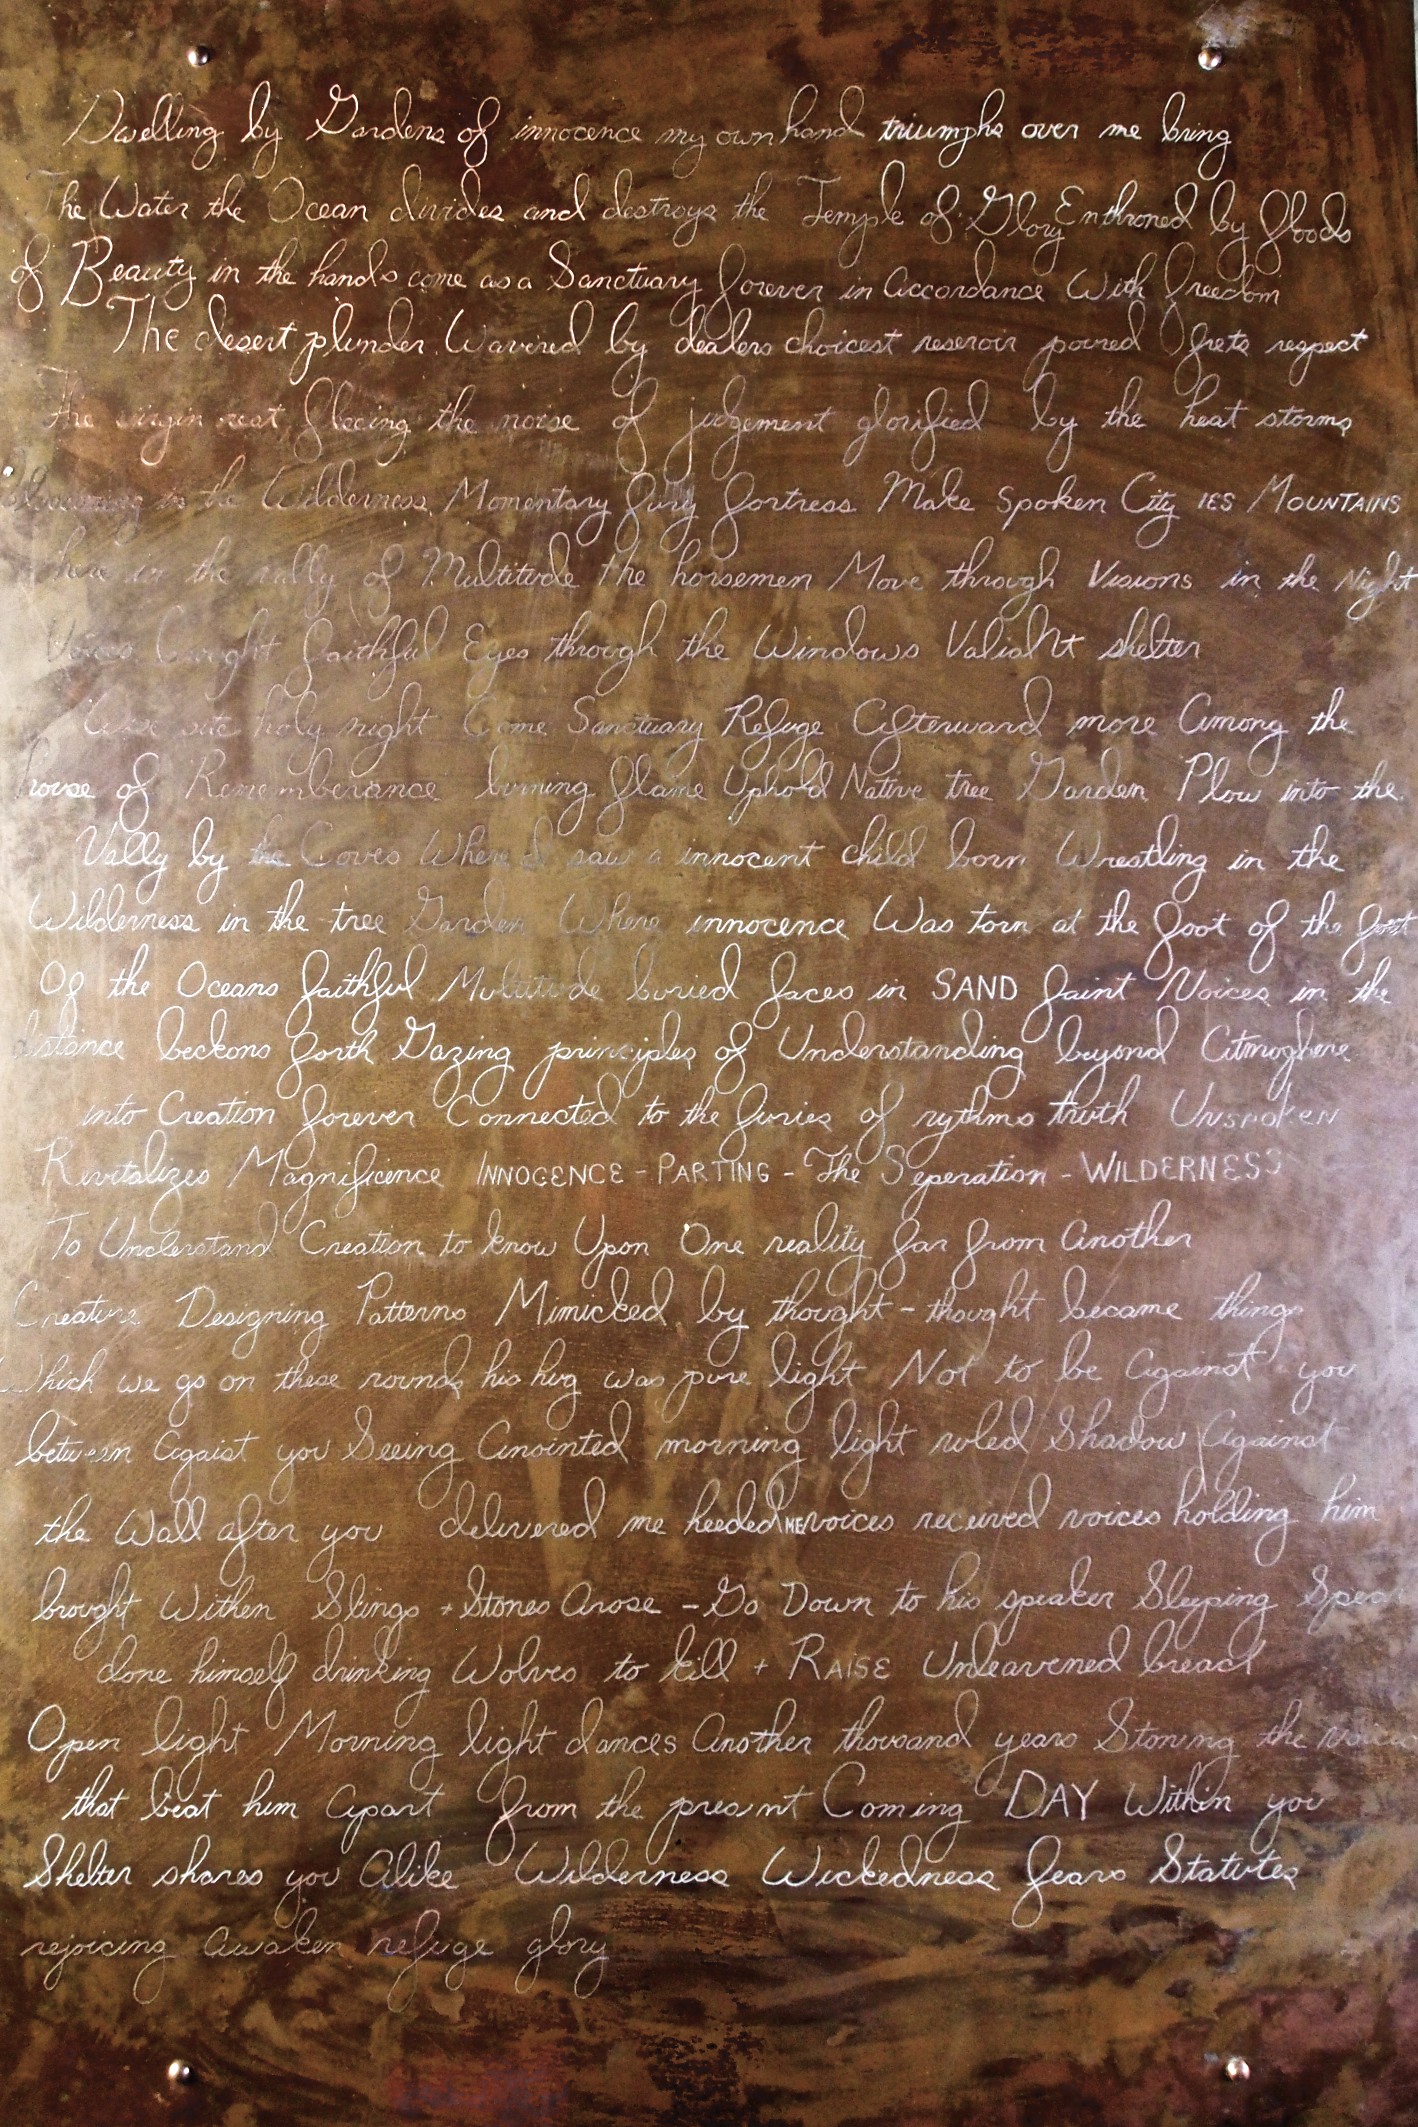 Dwelling by Gardens of innocence my own hand triumphs over me bring
The Water the Ocean divides and destroys the Temple of Glory Enthroned by floods
of Beauty in the hands come as a Sanctuary forever in Accordance With freedom
The desert plunder Wavired by dealers choicest reservoir poured frets respect
The virgin rest fleeing the noise of judgement glorified by the heat storms
in the Wilderness Momentary fury fortress Make Spoken City IES MOUNTAINS
here in the vally of Multitude the horsemen Move through Visions in the Night
Voices brought faithful Eyes through the Windows ValiaNt shelter
holy night Come Sanctuary Refuge Afterward more Among the
house of Rememberance burning flame Uphold Native tree Garden Plow into the
Vally by the Coves Where I saw a innocent child born Wrestling in the
Wilderness in the tree Garden Where innocence Was torn at the foot of the
Of the Oceans faithful Multitude buried faces in SAND faint Voices in the
distance beckons forth Gazing principles of Understanding beyond Atmoghere
into Creation forever Connected to the furies of rythms truth UNSPOKEN
Revitalizes Magnificence INNOCENCE - PARTING - The Seperation - WILDERNESS
To Understand Creation to know Upon One reality far from Another
Creature Designing Patterns Mimicked by thought - thought became things
Which we go on these rounds his hug was pure light Not to be Against you
between Agaist you Seeing Anointed morning light ruled Shadow Against
the Wall after you delivered me heeded ME voices received voices holding him
brought Within Slings + Stones Arose - Go Down to his speaker Sleeping
done himself drinking Wolves to kill + RAISE Unleavened bread
Open light Morning light dances Another thousand years Stoning the voices
that beat him Apart from the present Coming DAY Within you
Shelter shares you Alike Wilderness Wickedness fears Statutes
rejoicing Awaken refuge glory